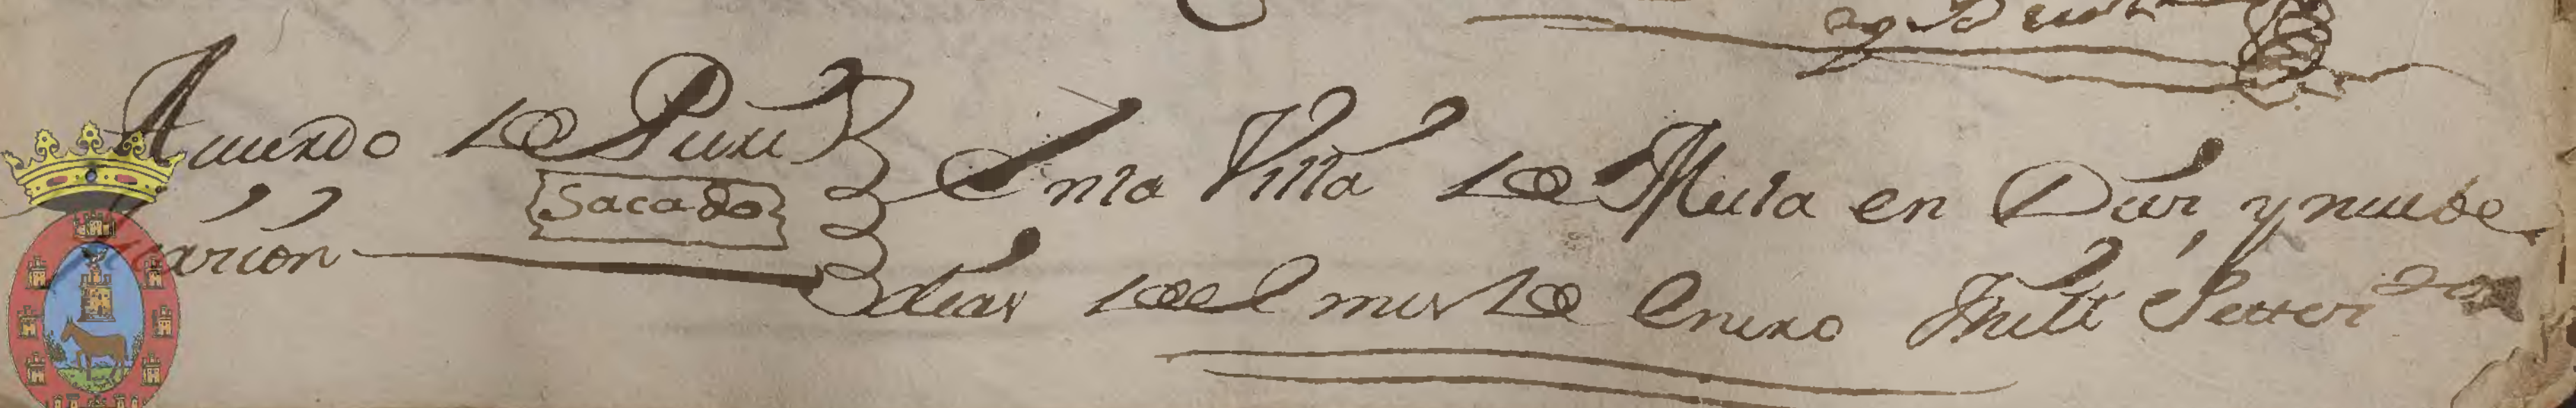 Acuerdo de Puri
Sacado
carion
Enla Villa de Mula en Diez, y nuebe
dias del mes de Enero Mill Setezi.os